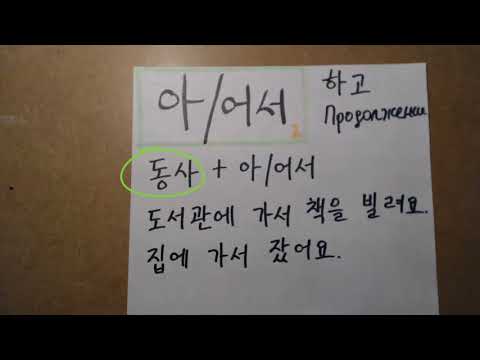 아/어서
2
하고
Продолжении
동사 + 아/어서
도서관에 가서 책을 빌려요.
집에 가서 잤어요.